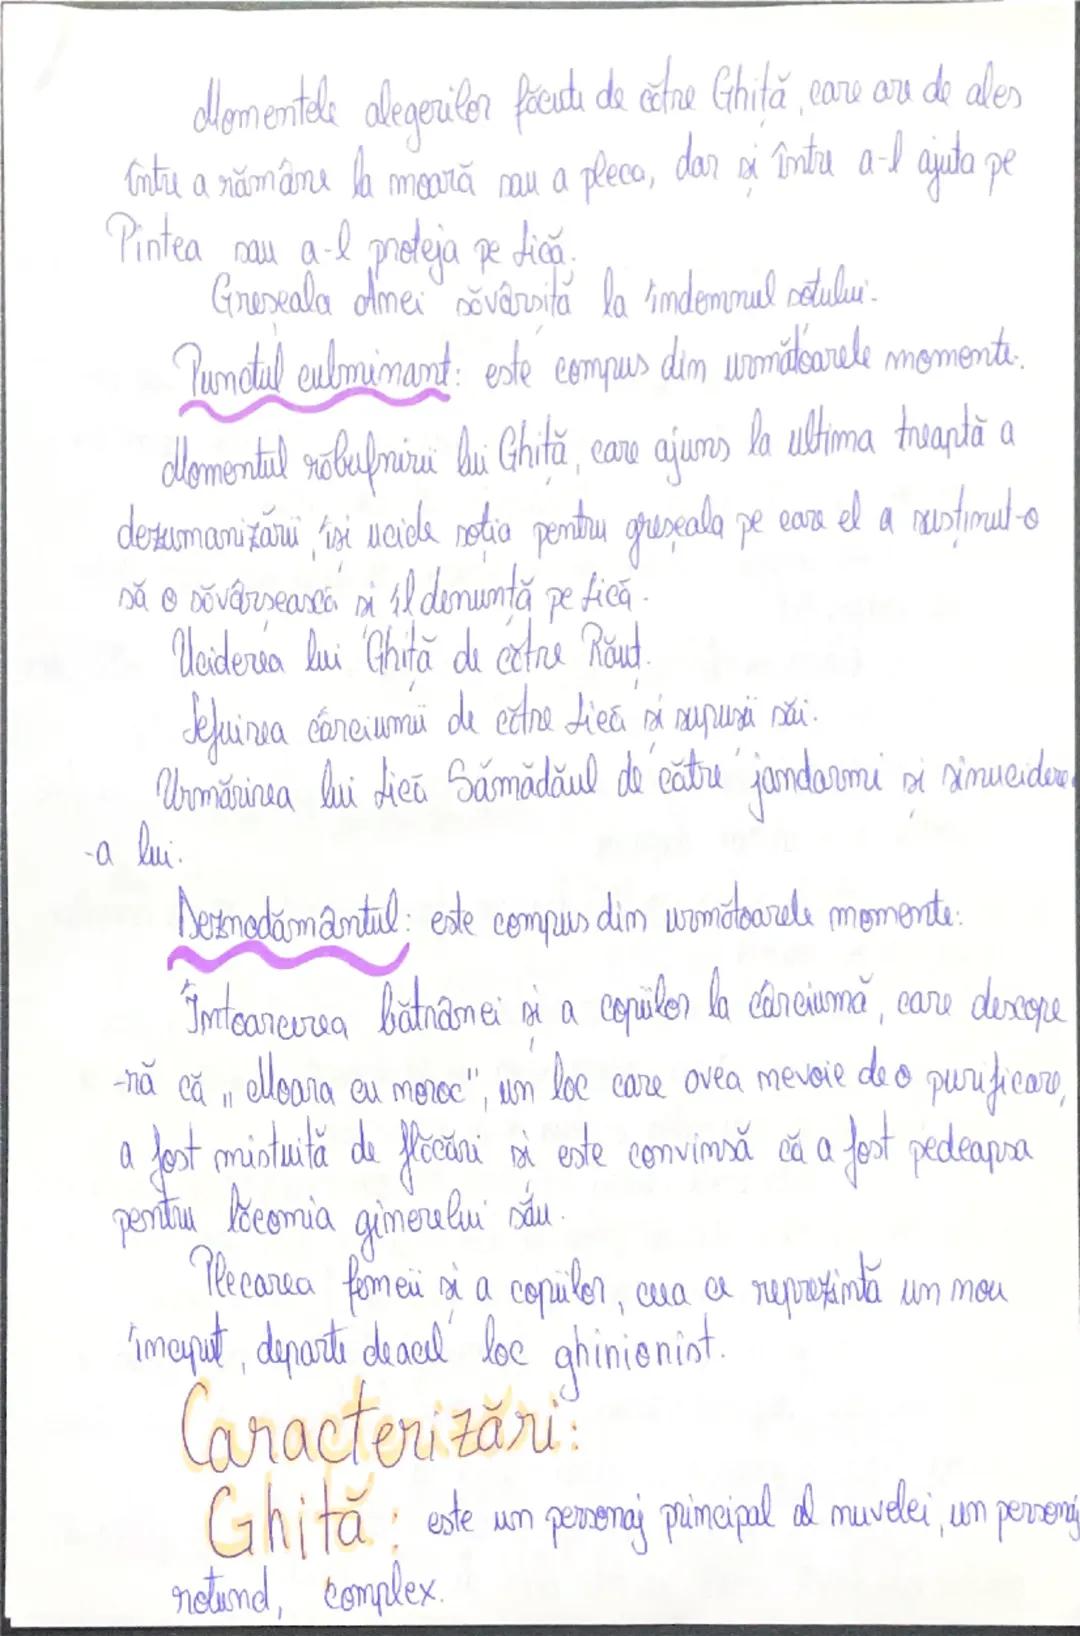 Momentele alegerilor făcute de către Ghiță, care are de ales
între a rămâne la moară sau a pleca, dar și între a-l ajuta pe
Pintea sau a-l proteja pe Lică.
Greșeala Anei săvârșită la îndemnul soțului.
Punctul culminant: este compus din următoarele momente.
Momentul răbufnirii lui Ghiță, care ajuns la ultima treaptă a
dezumanizării, își ucide soția pentru greșeala pe care el a susținut-o
să o săvârșească și îl denunță pe Lică.
Uciderea lui Ghiță de către Răuț.
Jefuirea cârciumii de către Lică și supușii săi.
Urmărirea lui Lică Sămădăul de către jandarmi și sinuciderea
-a lui.
Deznodământul: este compus din următoarele momente:
Întoarcerea bătrânei și a copiilor la cârciumă, care descope
-ră că „Moara cu noroc", un loc care avea nevoie de o purificare,
a fost mistuită de flăcări și este convinsă că a fost pedeapsa
pentru lăcomia ginerelui său.
Plecarea femeii și a copiilor, ceea ce reprezintă un nou
început, departe de acel loc ghinionist.
Caracterizări:
Ghiță: este un personaj principal al nuvelei, un personaj
rotund, complex.